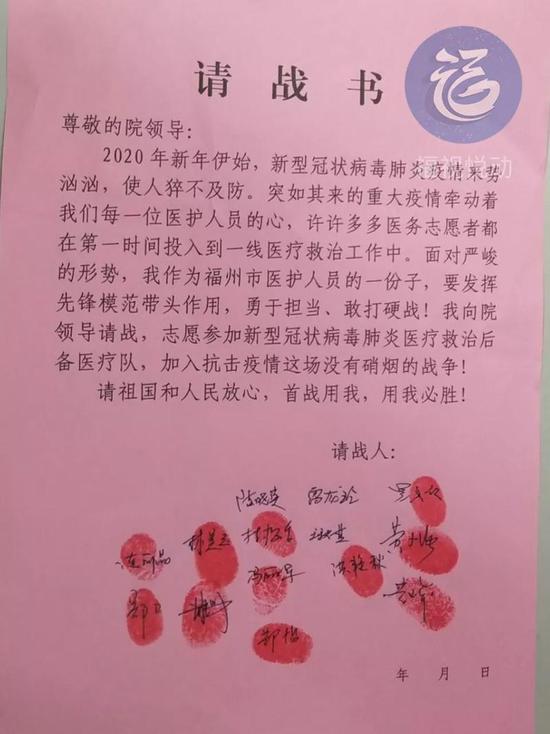 请战书
尊敬的院领导：
2020年新年伊始，新型冠状病毒肺炎疫情来势
汹汹，使人猝不及防。突如其来的重大疫情牵动着
我们每一位医护人员的心，许许多多医务志愿者都
在第一时间投入到一线医疗救治工作中。面对严峻
的形势，我作为福州市医护人员的一份子，要发挥
先锋模范带头作用，勇于担当、敢打硬战！我向院
领导请战，志愿参加新型冠状病毒肺炎医疗救治后
备医疗队，加入抗击疫情这场没有硝烟的战争！
请祖国和人民放心，首战用我，用我必胜！
请战人：
年 月 日
福视悦动